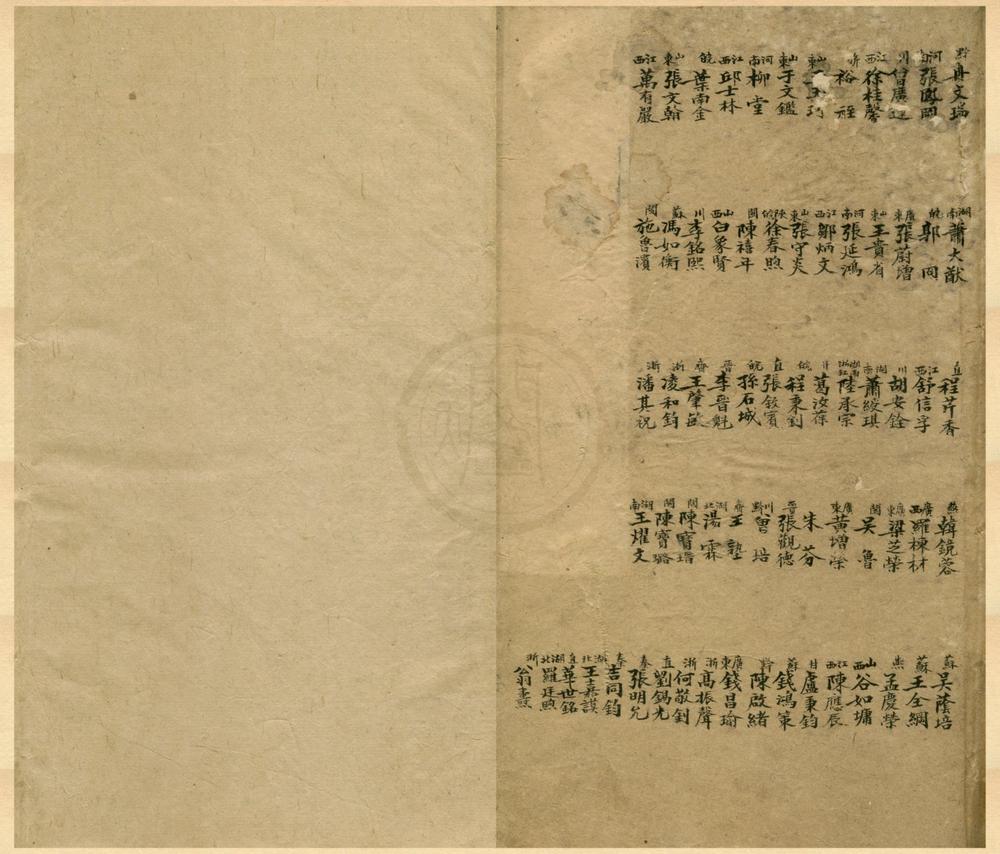 黔 冉文瑞
河南 張鳳岡
川 曾廣
江西 徐桂馨
裕
山東 王
山東 于文鑑
河南 柳堂
江西 邱士林
皖 葉南金
山東 張文翰
江西 萬有嚴
湖南 蕭大猷
皖 郭同
廣東 張蔚增
山東 王貴省
河南 張延鴻
江西 鄒炳文
山東 張守炎
徐春煦
閩 陳禧年
山西 白象賢
川 李銘熙
蘇 馮如衡
閩 施魯濱
直 程芹香
江西 舒信孚
川 胡安銓
湖南 蕭綬琪
陸承宗
甘 葛汝葆
皖 程秉釗
直 張敘賓
皖 孫石城
晉 李晉魁
齊 王肇敏
浙 凌和鈞
浙 潘其祝
燕 韓鏡蓉
廣西 羅棟材
廣東 梁芝榮
閩 吳魯
廣東 黃增榮
朱芬
晉 張觀德
培
齊 王塾
湖北 湯霖
閩 陳寶瑨
閩 陳寶璐
湖南 王燿文
蘇 吳蔭培
蘇 王全綱
燕 孟慶榮
山西 谷如墉
江西 陳應辰
甘 盧秉鈞
蘇 錢鴻策
黔 陳啟緒
廣東 錢昌瑜
浙 高振聲
浙 何敬釗
直 劉錫光
秦 張明允
秦 吉同鈞
湖北 王嘉謨
直 華世銘
湖北 羅廷煦
浙 翁燾